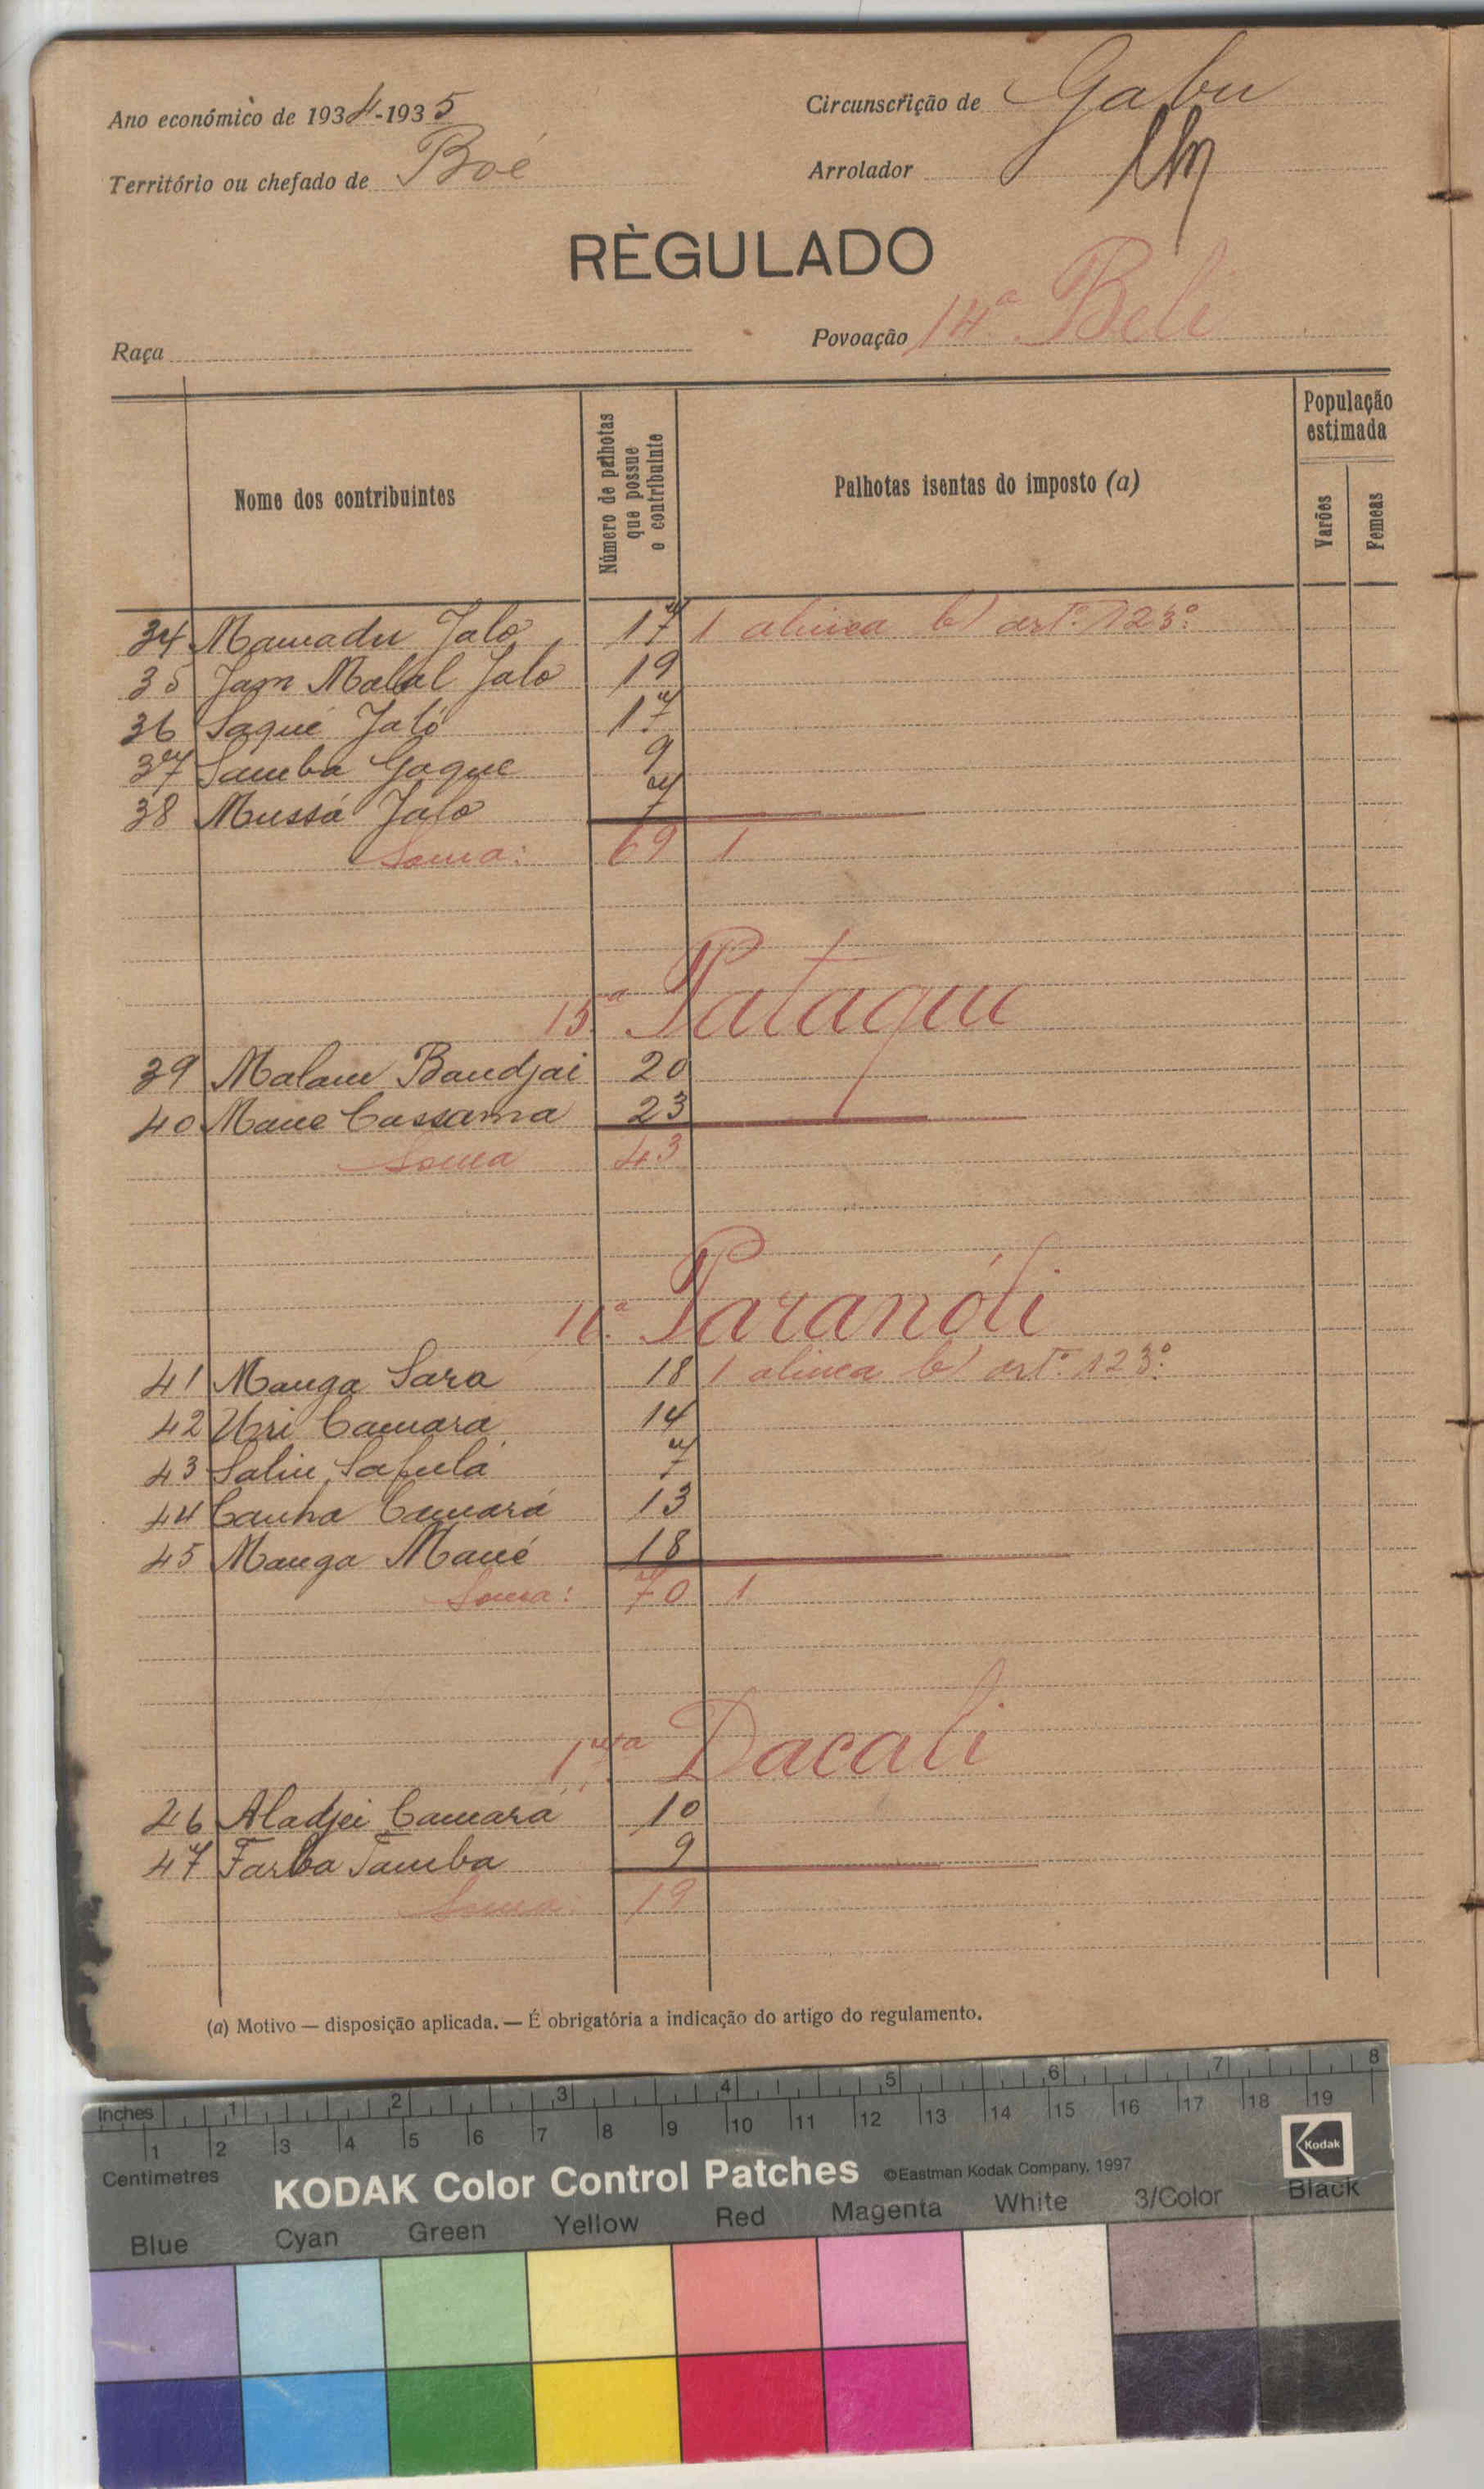 Ano económico de 1934-1935
Circunscrição de Gabu
Território ou chefado de Boé
Arrolador
RÈGULADO
Raça
Povoação 14ª Beli
Nome dos contribuintes
Número de palhotas que possue o contribuinte
Palhotas isentas do imposto (a)
População estimada
Varões
Femeas
34 Mamadu Jaló 17 1 alinea b) artº 123º
35 Jam Malal Jaló 19
36 Saqué Jaló 17
37 Samba Gaque 9
38 Mussá Jaló 7
Soma: 69 1
15ª Pataque
39 Malam Bandjai 20
40 Mane Cassama 23
Soma 43
16ª Paranóli
41 Manga Sara 18 1 alinea b) artº 123º
42 Uri Camará 14
43 Saliu Safulá 7
44 Canha Camará 13
45 Manga Mané 18
Soma: 70 1
17ª Dacali
46 Aladjei Camará 10
47 Farba Tamba 9
Soma: 19
(a) Motivo — disposição aplicada. — É obrigatória a indicação do artigo do regulamento.
Inches 1 2 3 4 5 6 7 8
1 2 3 4 5 6 7 8 9 10 11 12 13 14 15 16 17 18 19
Centimetres
KODAK Color Control Patches ©Eastman Kodak Company, 1997 Kodak
Blue Cyan Green Yellow Red Magenta White 3/Color Black